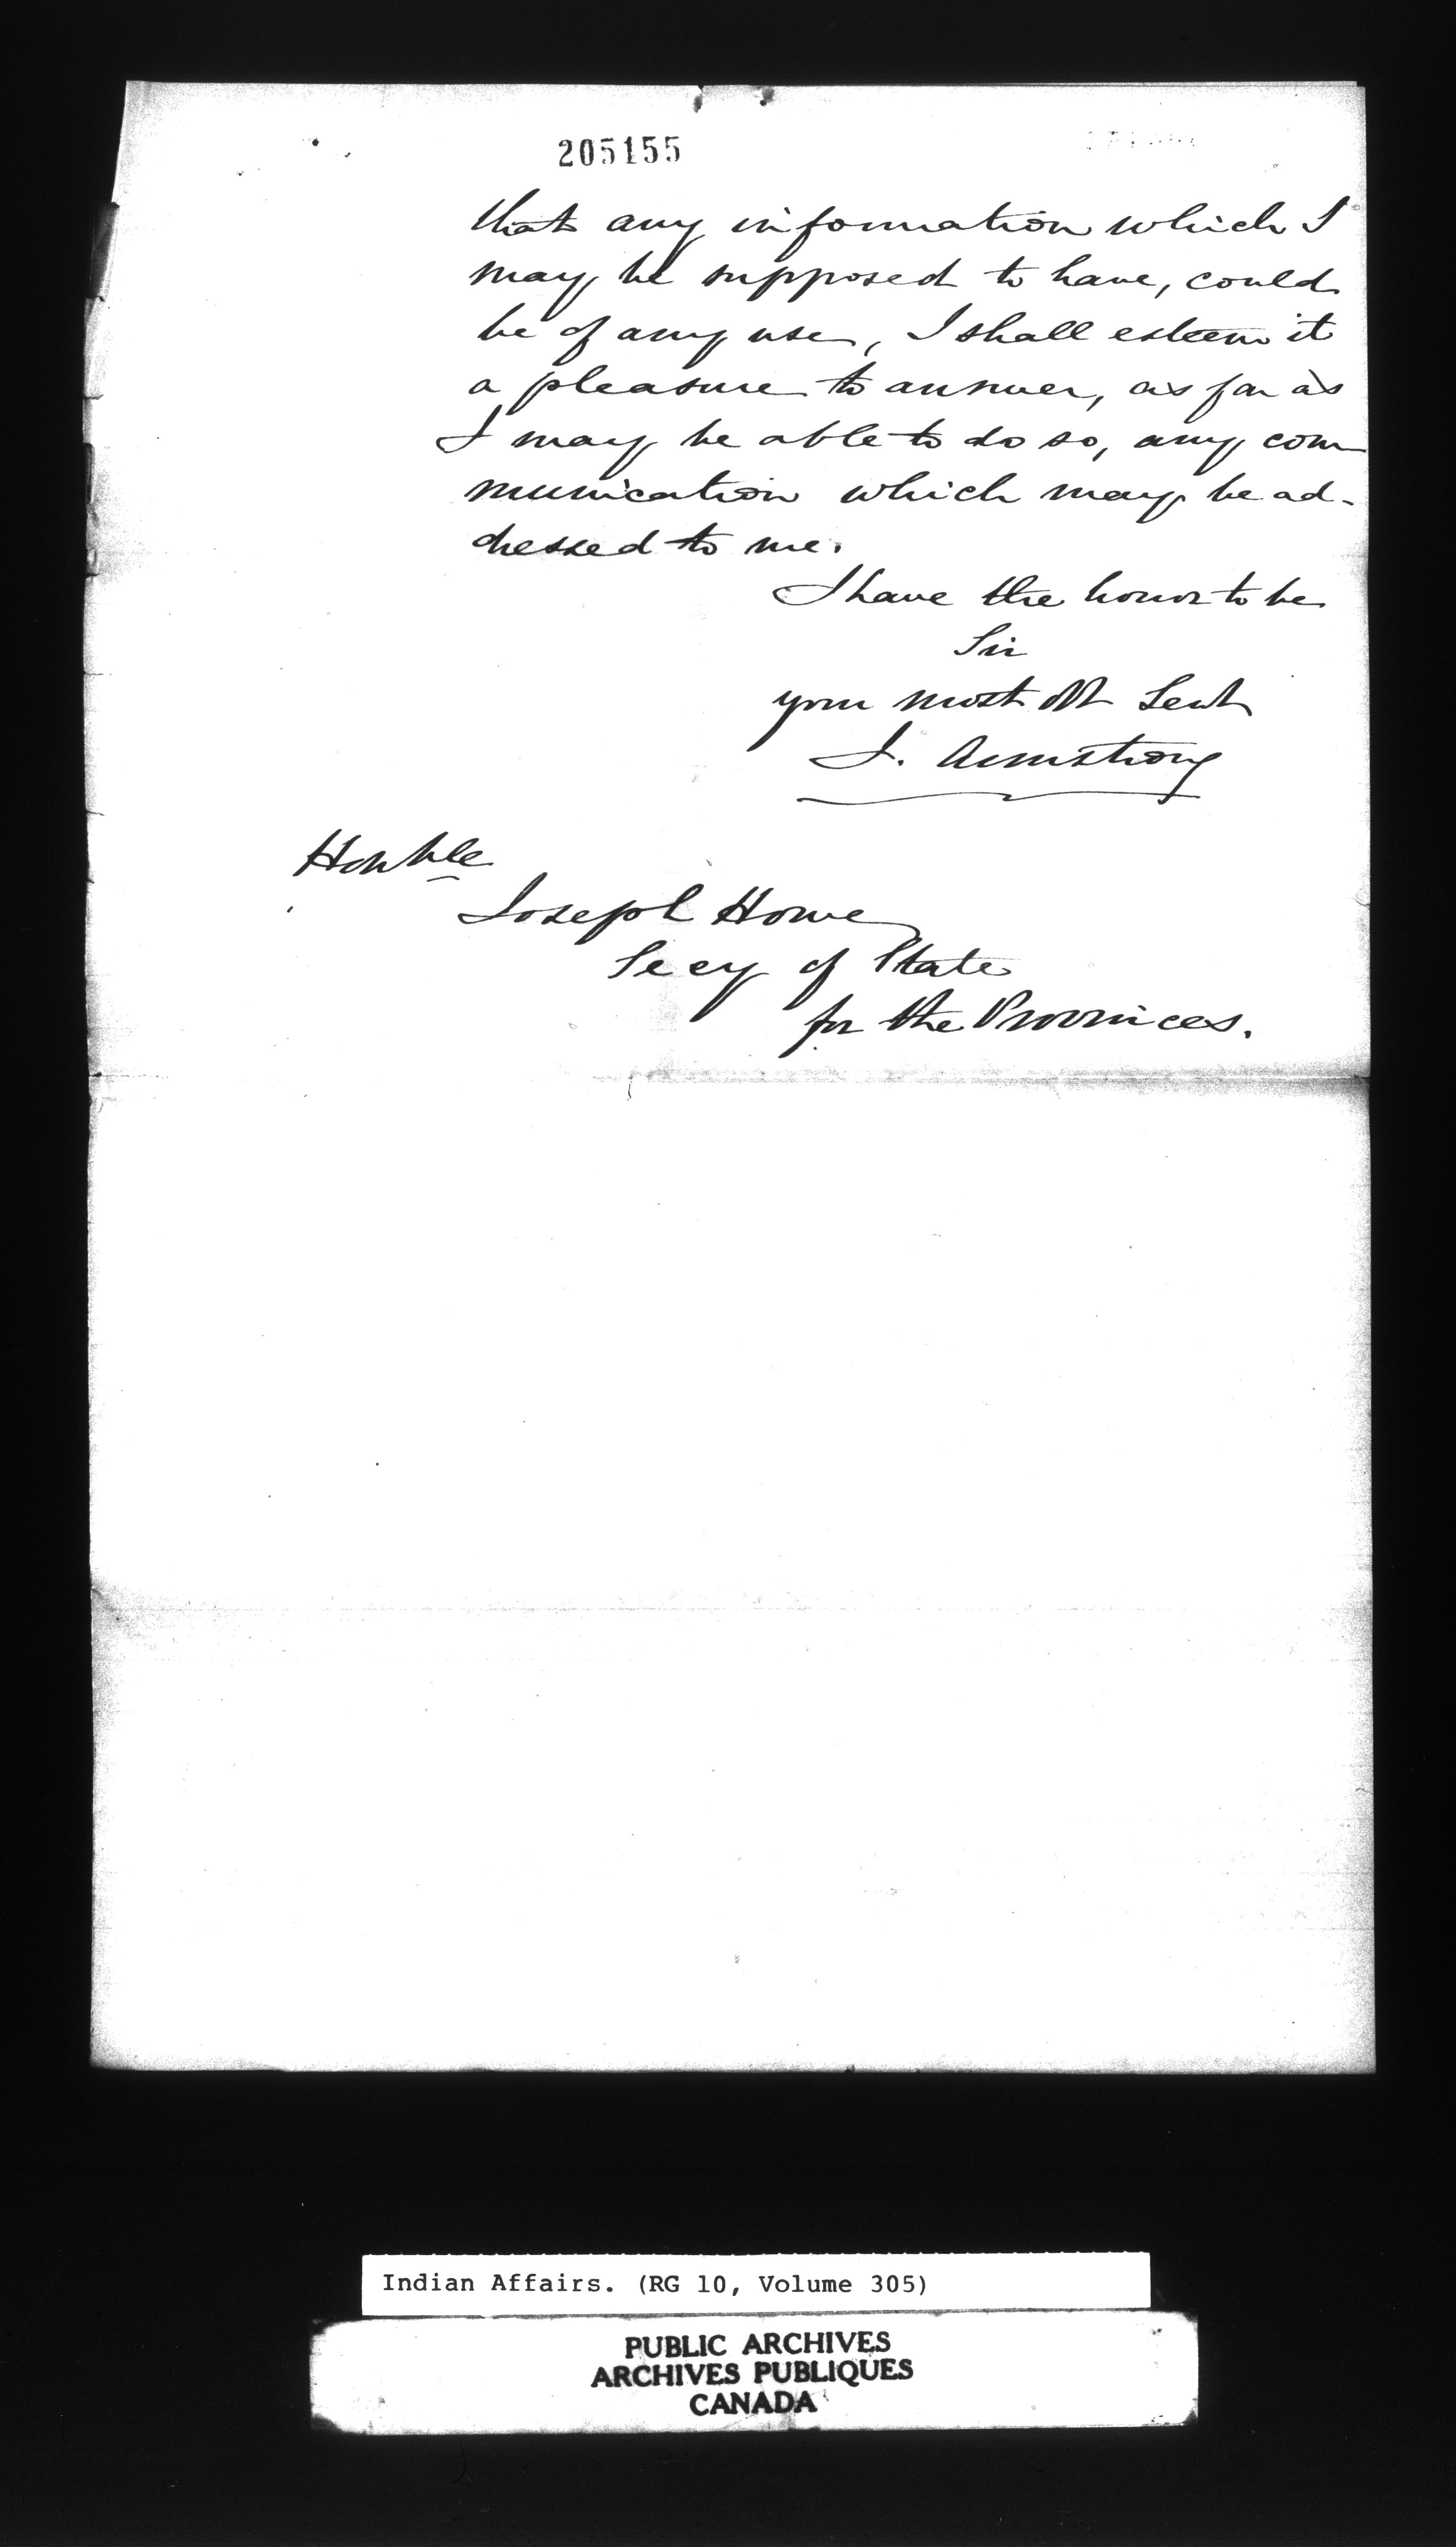 205155
that any information which I
may be supposed to have, could
be of any use, I shall esteem it
a pleasure to answer, as far as
I may be able to do so, any com
munication which may be ad-
dressed to me.
I have the honor to be
Sir
your most Obt Servt
J. Armstrong
Honble
Joseph Howe
Secy of State
for the Provinces.
Indian Affairs. (RG 10, Volume 305)
PUBLIC ARCHIVES
ARCHIVES PUBLIQUES
CANADA